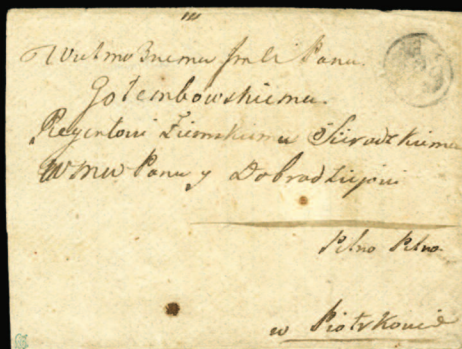 Wielmożnemu Jmci Panu
Gołembowskiemu
Regentowi Ziemskiemu Sieradzkiemu
WMu Panu y Dobrodziejowi
Pilno Pilno
w Piotrkowie